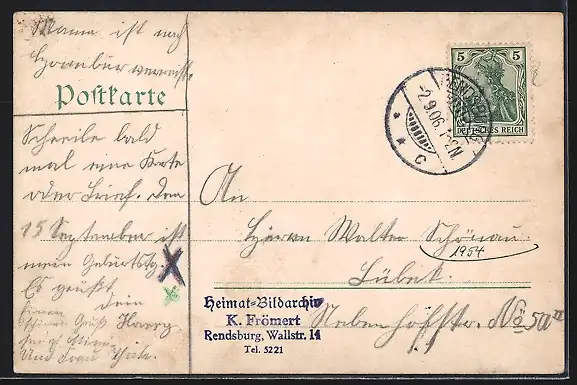 Mama ist nach
verreist.
Postkarte
Schreibe bald
mal eine Karte
oder Brief. Den
15 September ist
mein Geburtstg.
Es grüßt
Dein
Harry
Einen
schönen Gruß
Und Frau Thiele.
5
DEUTSCHES REICH
-2.9.06. 1-2N
* * C
An
Herrn Walter Schönau
1954
Lübek.
No 50 II
Heimat-Bildarchiv
K. Frömert
Rendsburg, Wallstr. 14
Tel. 5221